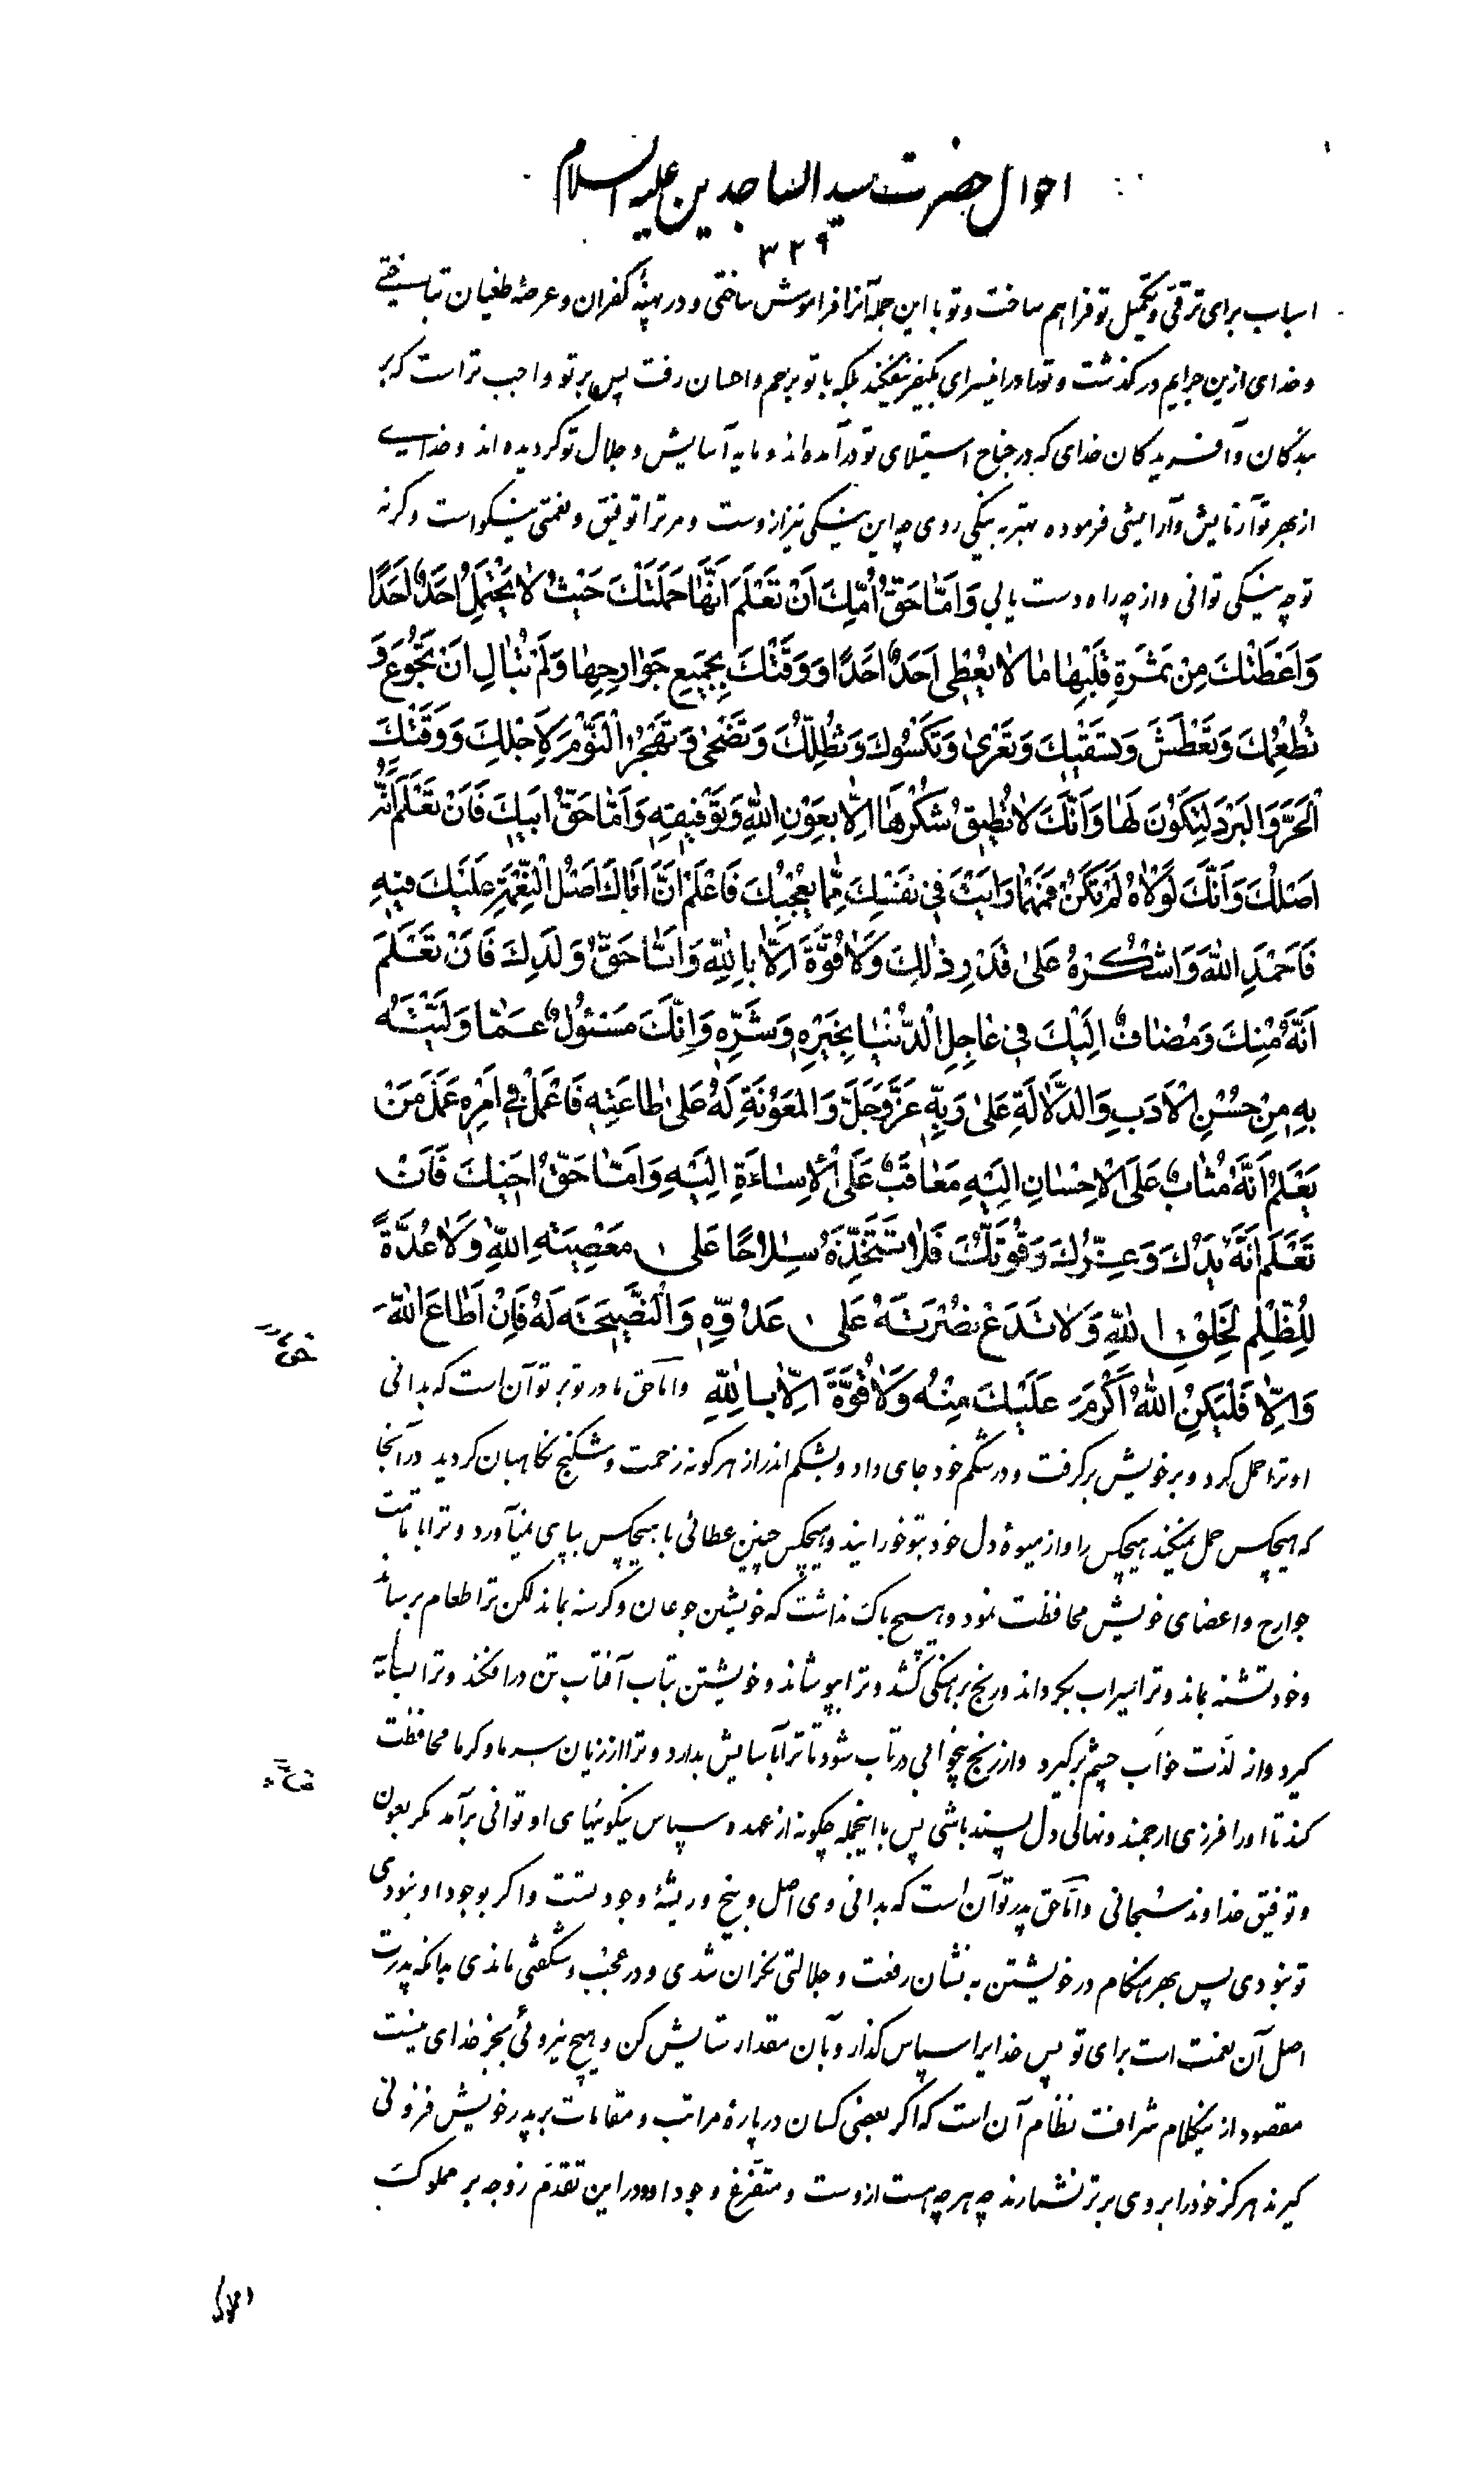 احوال حضرت سید الساجدین علیه السلام
۳۲۹
اسباب برای ترقی و تکمیل تو فراهم ساخت و تو با این جمله آنرا فراموش ساختی و در پهنهٔ کفران و عرصهٔ طغیان بتاختی
و خدای ازین جرایم در گذشت و تو را در سرای بکیفر نیفکند بلکه با تو برحم و احسان رفت پس بر تو واجب تر است که بر
بندگان و آفریدگان خدای که در جناح استیلای تو در آمده‌اند و مایه آسایش و جلال تو گردیده‌اند و خدایی
از بهر تو آزمایش و آرایشی فرموده بهتر به نیکی روی چه این نیکی نیز از اوست و مر ترا توفیق و نعمتی نیکو است وگرنه
تو چه نیکی توانی و از چه راه دست یابی وَاَمّٰا حَقُّ اُمِّكَ اَنْ تَعْلَمَ اَنَّهٰا حَمَلَتْكَ حَيْثُ لاٰ يَحْتَمِلُ اَحَدٌ اَحَدًا
وَاَعْطَتْكَ مِنْ ثَمَرَةِ قَلْبِهٰا مٰا لاٰ يُعْطِى اَحَدٌ اَحَدًا وَوَقَتْكَ بِجَمِيعِ جَوٰارِحِهٰا وَلَمْ تُبٰالِ اَنْ تَجُوعَ وَ
تُطْعِمَكَ وَتَعْطَشَ وَتَسْقِيَكَ وَتَعْرىٰ وَتَكْسُوكَ وَتُظِلَّكَ وَتَضْحىٰ وَتَهْجُرُ النَّوْمَ لِاَجْلِكَ وَوَقَتْكَ
الْحَرَّ وَالْبَرْدَ لِتَكُونَ لَهٰا وَاَنَّكَ لاٰ تُطِيقُ شُكْرَهٰا اِلّاٰ بِعَوْنِ اللّٰهِ وَتَوْفِيقِهِ وَاَمّٰا حَقُّ اَبيكَ فَاَنْ تَعْلَمَ اَنَّهُ
اَصْلُكَ وَاَنَّكَ لَوْلاٰهُ لَمْ تَكُنْ فَمَهْمٰا رَاَيْتَ فِي نَفْسِكَ مِمّٰا يُعْجِبُكَ فَاعْلَمْ اَنَّ اَبٰاكَ اَصْلُ النِّعْمَةِ عَلَيْكَ فِيهِ
فَاحْمَدِ اللّٰهَ وَاشْكُرْهُ عَلىٰ قَدْرِ ذٰلِكَ وَلاٰ قُوَّةَ اِلّاٰ بِاللّٰهِ وَاَمّٰا حَقُّ وَلَدِكَ فَاَنْ تَعْلَمَ
اَنَّهُ مِنْكَ وَمُضٰافٌ اِلَيْكَ فِي عٰاجِلِ الدُّنْيٰا بِخَيْرِهِ وَشَرِّهِ وَاِنَّكَ مَسْئُولٌ عَمّٰا وَلَّيْتَهُ
بِهِ مِنْ حُسْنِ الْاَدَبِ وَالدَّلاٰلَةِ عَلىٰ رَبِّهِ عَزَّوَجَلَّ وَالْمَعُونَةِ لَهُ عَلىٰ طٰاعَتِهِ فَاعْمَلْ فِي اَمْرِهِ عَمَلَ مَنْ
يَعْلَمُ اَنَّهُ مُثٰابٌ عَلَى الْاِحْسٰانِ اِلَيْهِ مُعٰاقَبٌ عَلَى الْاِسٰاءَةِ اِلَيْهِ وَاَمّٰا حَقُّ اَخِيكَ فَاَنْ
تَعْلَمَ اَنَّهُ يَدُكَ وَعِزُّكَ وَقُوَّتُكَ فَلاٰ تَتَّخِذْهُ سِلاٰحًا عَلى مَعْصِيَةِ اللّٰهِ وَلاٰ عُدَّةً
لِلظُّلْمِ لِخَلْقِ اللّٰهِ وَلاٰ تَدَعْ نُصْرَتَهُ عَلى عَدُوِّهِ وَالنَّصِيحَةَ لَهُ فَاِنْ اَطٰاعَ اللّٰهَ
وَاِلّاٰ فَلْيَكُنِ اللّٰهُ اَكْرَمَ عَلَيْكَ مِنْهُ وَلاٰ قُوَّةَ اِلّاٰ بِاللّٰهِ و اما حق مادر تو بر تو آن است که بدانی
او ترا حمل کرد و بر خویش بر گرفت و در شکم خود جای داد و بشکم اندر از هر گونه زحمت و شکنج نگاهبان گردید در آنجا
که هیچکس حمل نمیکند هیچکس را و از میوهٔ دل خود بتو خورانید و هیچکس چنین عطائی با هیچکس بپای نمیآورد و ترا با تمامت
جوارح و اعضای خویش محافظت نمود و هیچ باک نداشت که خویشتن جوعان و گرسنه بماند لکن ترا طعام برساند
و خود تشنه بماند و ترا سیراب بگرداند و رنج برهنگی کشد و ترا بپوشاند و خویشتن بتاب آفتاب تن در افکند و ترا بسایه
گیرد و از لذت خواب چشم بر گیرد و از رنج بیخوابی در تاب شود تا ترا بآسایش بدارد و ترا از زیان سرما و گرما محافظت
کند تا او را فرزندی ارجمند و نهالی دل پسند باشی پس با اینجمله چگونه از عهده سپاس نیکوئیهای او توانی برآمد مگر بعون
و توفیق خداوند سبحانی و اما حق پدر تو آن است که بدانی وی اصل و بیخ و ریشهٔ وجود تست و اگر بوجود او نبودی
تو نبودی پس بهر هنگام در خویشتن به نشان رفعت و جلالتی نگران شدی و در عجب و شگفتی ماندی بدانکه پدرت
اصل آن نعمت است برای تو پس خدایرا سپاس گذار و بآن مقدار ستایش کن و هیچ نیروئی بجز خدای نیست
مقصود از اینکلام شرافت نظام آن است که اگر بعضی کسان در پارهٔ مراتب و مقامات بر پدر خویش فزونی
گیرند هرگز خود را بر وی برتر نشمارند چه هر چه هست از اوست و متفرع وجود او و در این تقدم زوجه بر مملوک